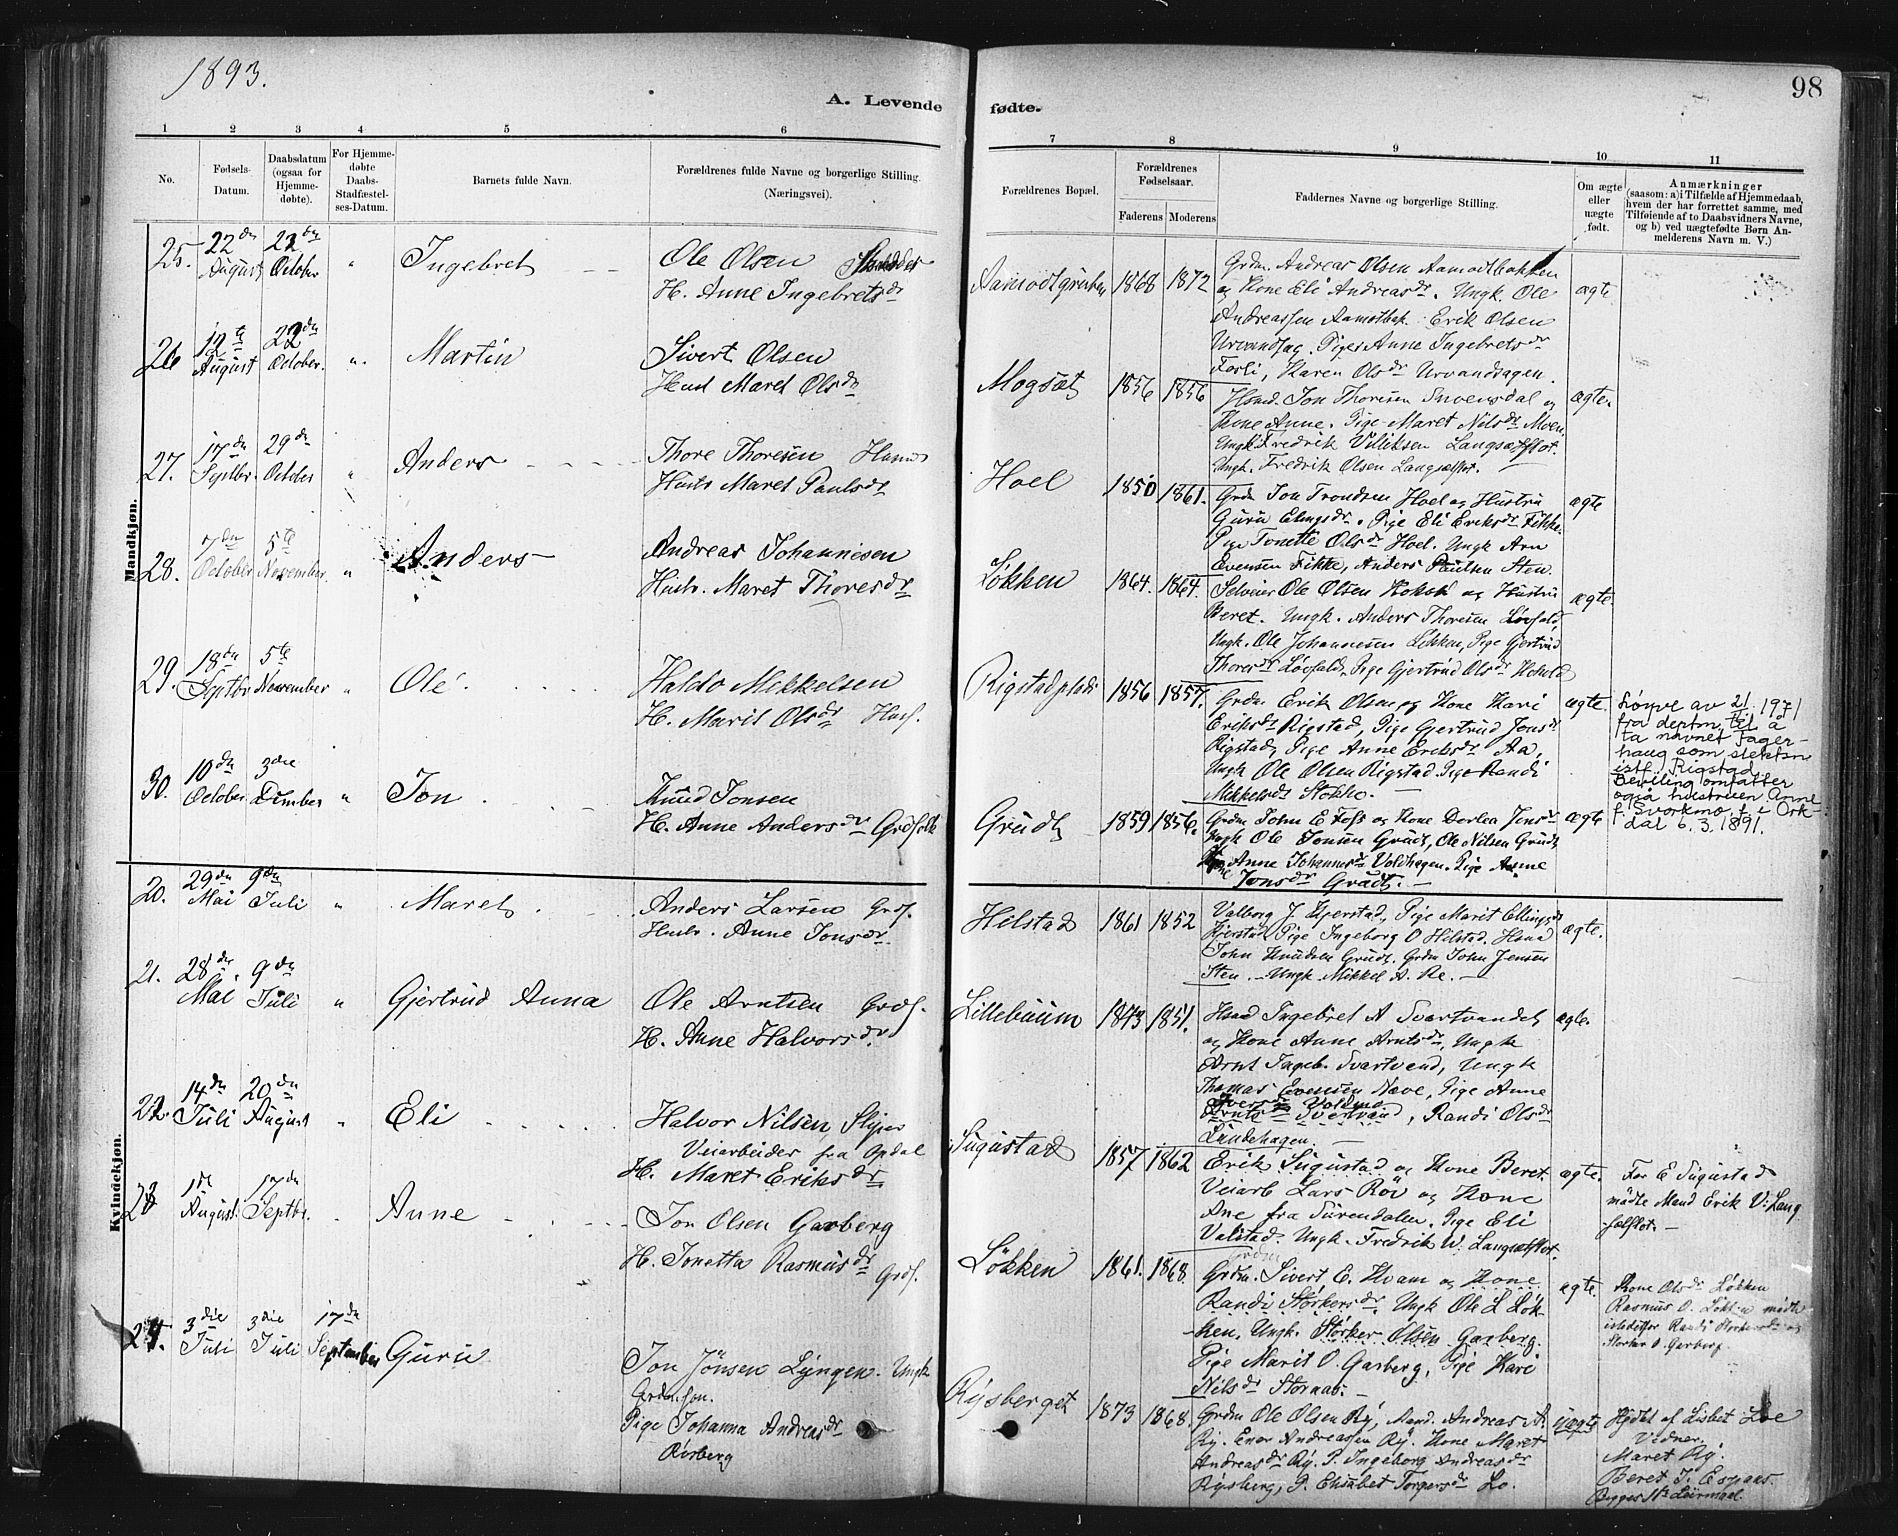 1893.
98
A. Levende fødte.
1 2 3 4 5 6 7 8 9 10 11
No.
Fødsels-
Datum.
Daabsdatum
(ogsaa for
Hjemme-
døbte).
For Hjemme-
døbte
Daabs-
Stadfæstel-
ses-Datum.
Barnets fulde Navn.
Forældrenes fulde Navne og borgerlige Stilling.
(Næringsvei).
Forældrenes Bopæl.
Forældrenes
Fødselsaar.
Faderens Moderens
Faddernes Navne og borgerlige Stilling.
Om ægte
eller
uægte
født.
Anmærkninger
(saasom: a) i Tilfælde af Hjemmedaab,
hvem der har forrettet samme, med
Tilføiende af to Daabsvidners Navne,
og b) ved uægtefødte Børn An-
melderens Navn m. V.)
Mandkjøn.
25. 22 dn August October " Ingebret
Ole Olsen
H. Anne Ingebretsdr
1868 1872
Grdm. Andreas Olsen Aamodtbakken
og Kone Eli Andreasdr. Ungk. Ole
Andreassen Erik Olsen
Pige Anne Ingebretsdr
Karen Olsdr
ægte
26 12te August 22dn October. " Martin
Sivert Olsen
Hust Maret Olsdr
Mogsæt 1856 1856
Jon Thoresen
Kone Anne. Pige Maret Nilsdr Moen
Ungk. Fredrik Langsætflot.
Ungk. Fredrik Olsen Langsætflot.
ægte.
27. 17dn Septbr. 29dn October " Anders
Thore Thoresen
Hustr Maret Paulsdr
Hoel 1850 1861.
Grdm Jon Trondsen Hoel og Hustru
Guru Pige Eli Eriksdr Fikke
Pige Tonette Olsdr Hoel. Ungk Arn
Evensen Fikke, Anders Paulsen Sten.
ægte
28. 7dn October 5te November " Anders
Andreas Johannesen
Hustr. Maret Thoresdr
Løkken 1864. 1864.
Ole Olsen og Hustru
Beret. Ungk. Anders Thoresen Løvfald,
Ungk. Ole Johannesen Løkken, Pige Gjertrud
Thoresdr Løvfald, Pige Gjertrud Olsdr
ægte.
29. 18dn Septbr 5te November " Ole
Haldo Mikkelsen
H. Marit Olsdr Husf.
Rigstadplads 1856 1857.
Grdm Erik Olsen og Kone Kari
Eriksdr Rigstad, Pige Gjertrud Jonsdr
Rigstad, Pige Anne Eriksdr Aa,
Ungk Ole Olsen Rigstad. Pige Randi
Mikkelsdr Stokke.
ægte.
av 21. 1971
fra deptm. til å
ta navnet Fager-
haug som slektsn
istf. Rigstad
Bevilling omfatter
også hustruen Anne
f. Svorkmo, f. i Ork-
dal 6.3.1891.
30. 10dn October 3die " Jon
Knud Jonsen
H. Anne Andersdr Grdfolk
Grudt 1859 1856.
Grdm John E. Foss og Kone Dorlea Jensdr
Ungk Ole Jonsen Grudt, Ole Nilsen Grudt
Anne Johannesdr Voldhagen. Pige Anne
Jonsdr Grudt.
ægte
Kvindekjøn.
20. 29dn Mai 9dn Juli " Maret
Anders Larsen Grdf.
Hustr. Anne Jonsdr.
Hilstad 1861 1852
Valborg J. Hjerstad, Pige Marit Ellingsdr
Hjerstad Pige Ingeborg O Hilstad. Hsmd
John Knudsen Grudt. Grdm John Jensen
Sten. Ungk Mikkel A. Re.
ægte.
21. 28de Mai 9dn Juli " Gjertrud Anna
Ole Arntsen Grdf.
H. Anne Halvorsdr.
Lillebuum 1843 1851.
Hsmd Ingebret A Svartvandet
og Kone Anne Arntsdr, Ungk
Arnt Ingeb. Svartvand, Ungk
Thomas Evensen Næve, Pige Anne
Iversdr
Arntsdr Svartvand, Randi Olsdr
Lindehagen.
ægte.
22. 14dn Juli 20dn August " Eli
Halvor Nilsen,
Veiarbeider fra Opdal
H. Maret Eriksdr
Sugustad 1857 1862
Erik Sugustad og Kone Beret.
Veiarb Lars Röv og Kone
Ane fra Surendalen. Pige Eli
Valstad. Ungk. Fredrik W. Langsætflot.
ægte.
For E Sugustad
mødte Mand Erik V. Lang
sætflot.
23 1de August 17dn Septbr. Anne
Jon Olsen Garberg
H. Jonetta Rasmusdr Grdf.
Løkken 1861. 1868.
Grdm. Sivert E. Hvam og Kone
Randi Størkersdr, Ungk Ole L Løk-
ken, Ungk. Størker Olsen Garberg.
Pige Marit O. Garberg, Pige Kari
Nilsdr Stornæs.
ægte.
Kone Olsdr Løkken
Rasmus O. Løkken mødte
istedetfor Randi Størkersdr og
Størker O. Garberg
24. 3die Juli 3die Juli 17dn September Guru
Jon Jönsen Lyngen. Ungk
Grdmsøn.
Pige Johanna Andreasdr
Rösberg
Rysberget 1873 1868.
Grdm Ole Olsen Ry, Mand. Andreas A.
Ry. Enor Andreassen Ry. Kone Maret
Andreasdr Ry. P. Ingeborg Andreasdr
Rysberg, P. Elisabet Torgersdr Lo.
uægte
Hjdbt af Lisbet Loe
Vidner.
Maret Ry.
Beret J. Espaas